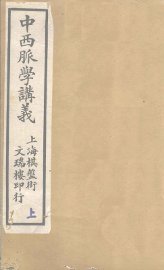 中西脈學講義
上海棋盤街
文瑞樓印行
上